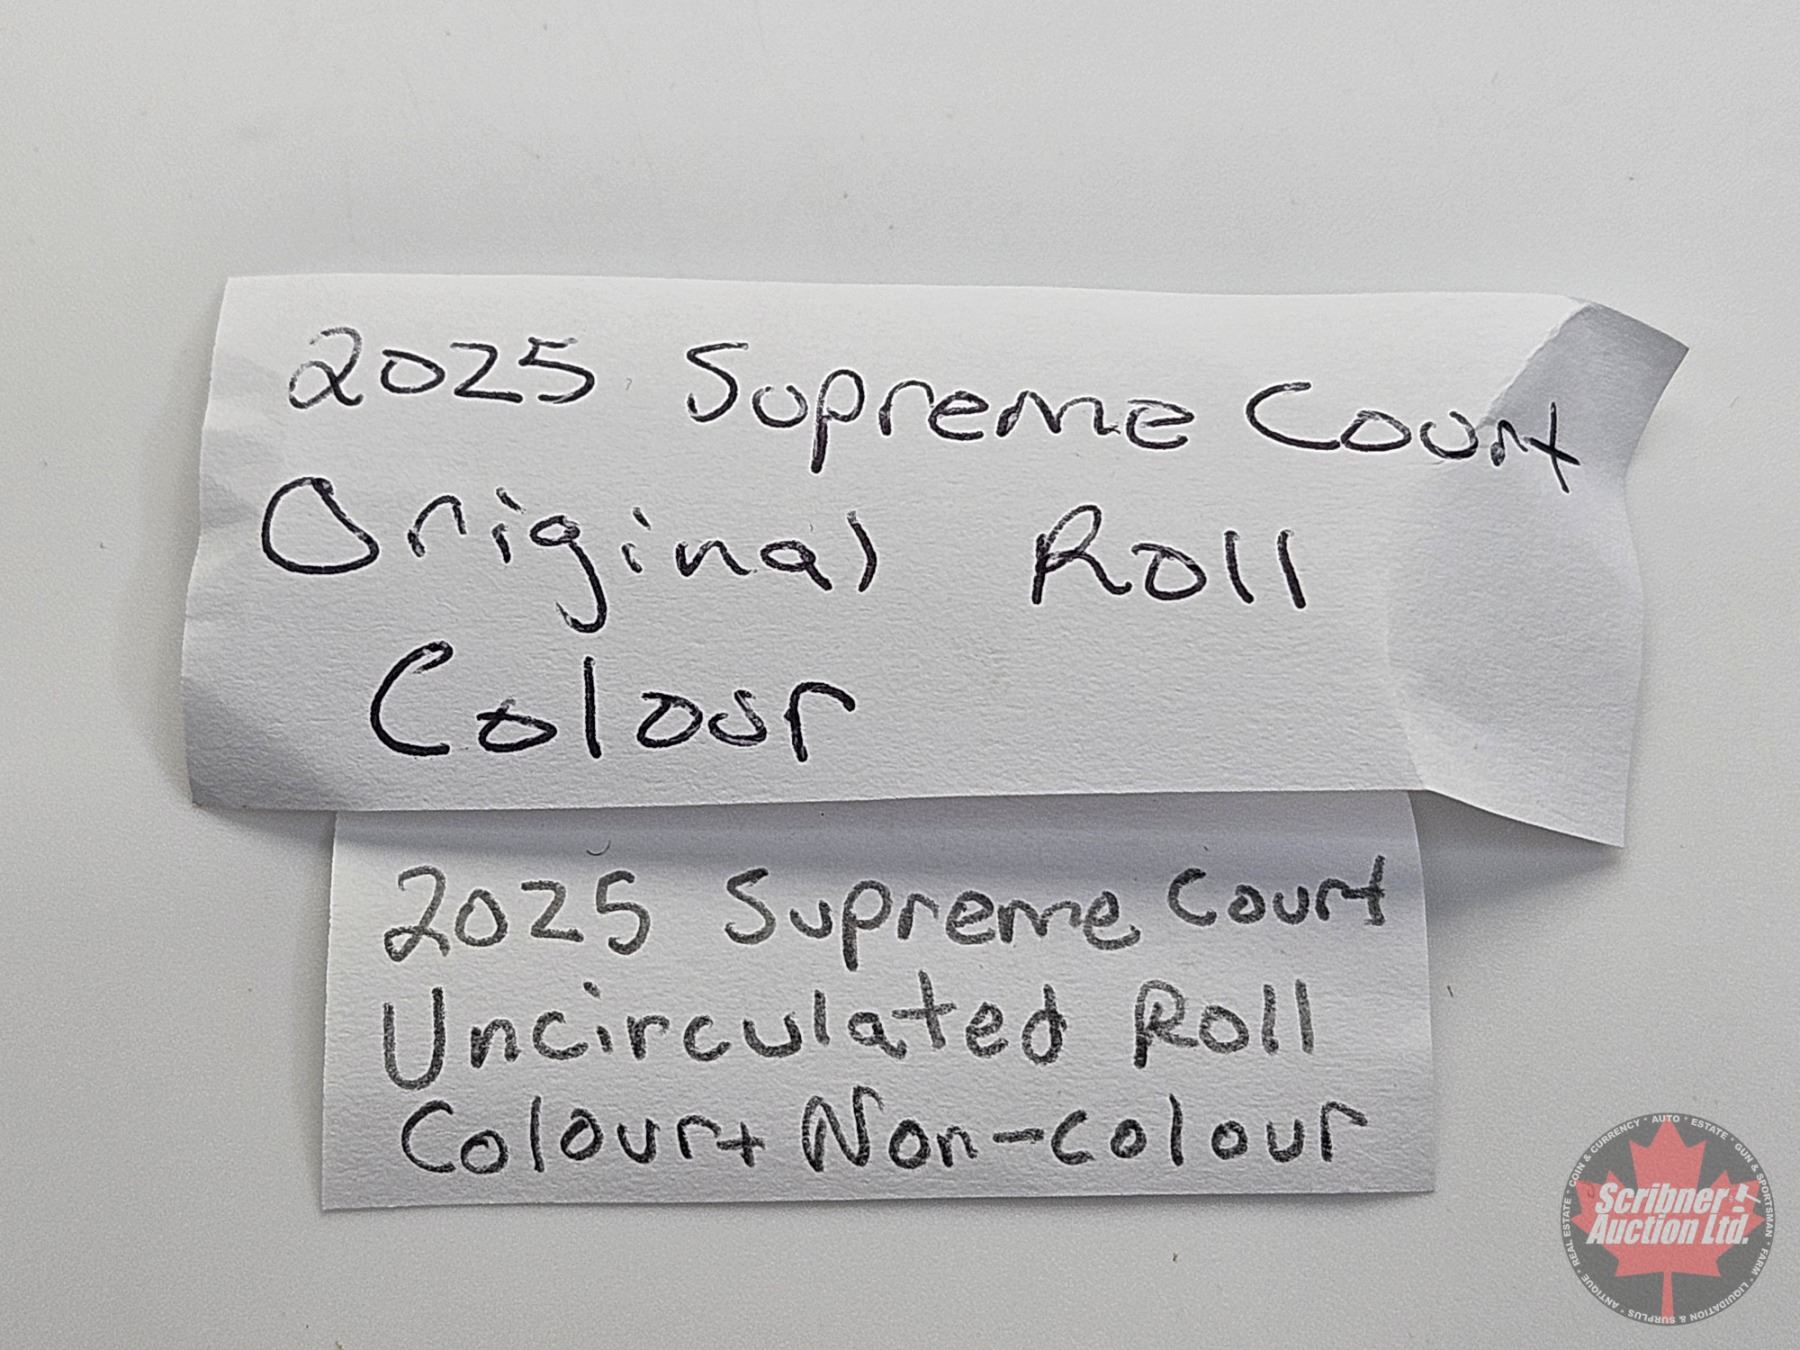 2025 Supreme Court
Original Roll
Colour
2025 Supreme Court
Uncirculated Roll
Colour + Non-colour
Scribner
Auction Ltd.
COIN & CURRENCY · AUTO · ESTATE · GUN & SPORTSMAN · FARM · LIQUIDATION & SURPLUS · ANTIQUE · REAL ESTATE